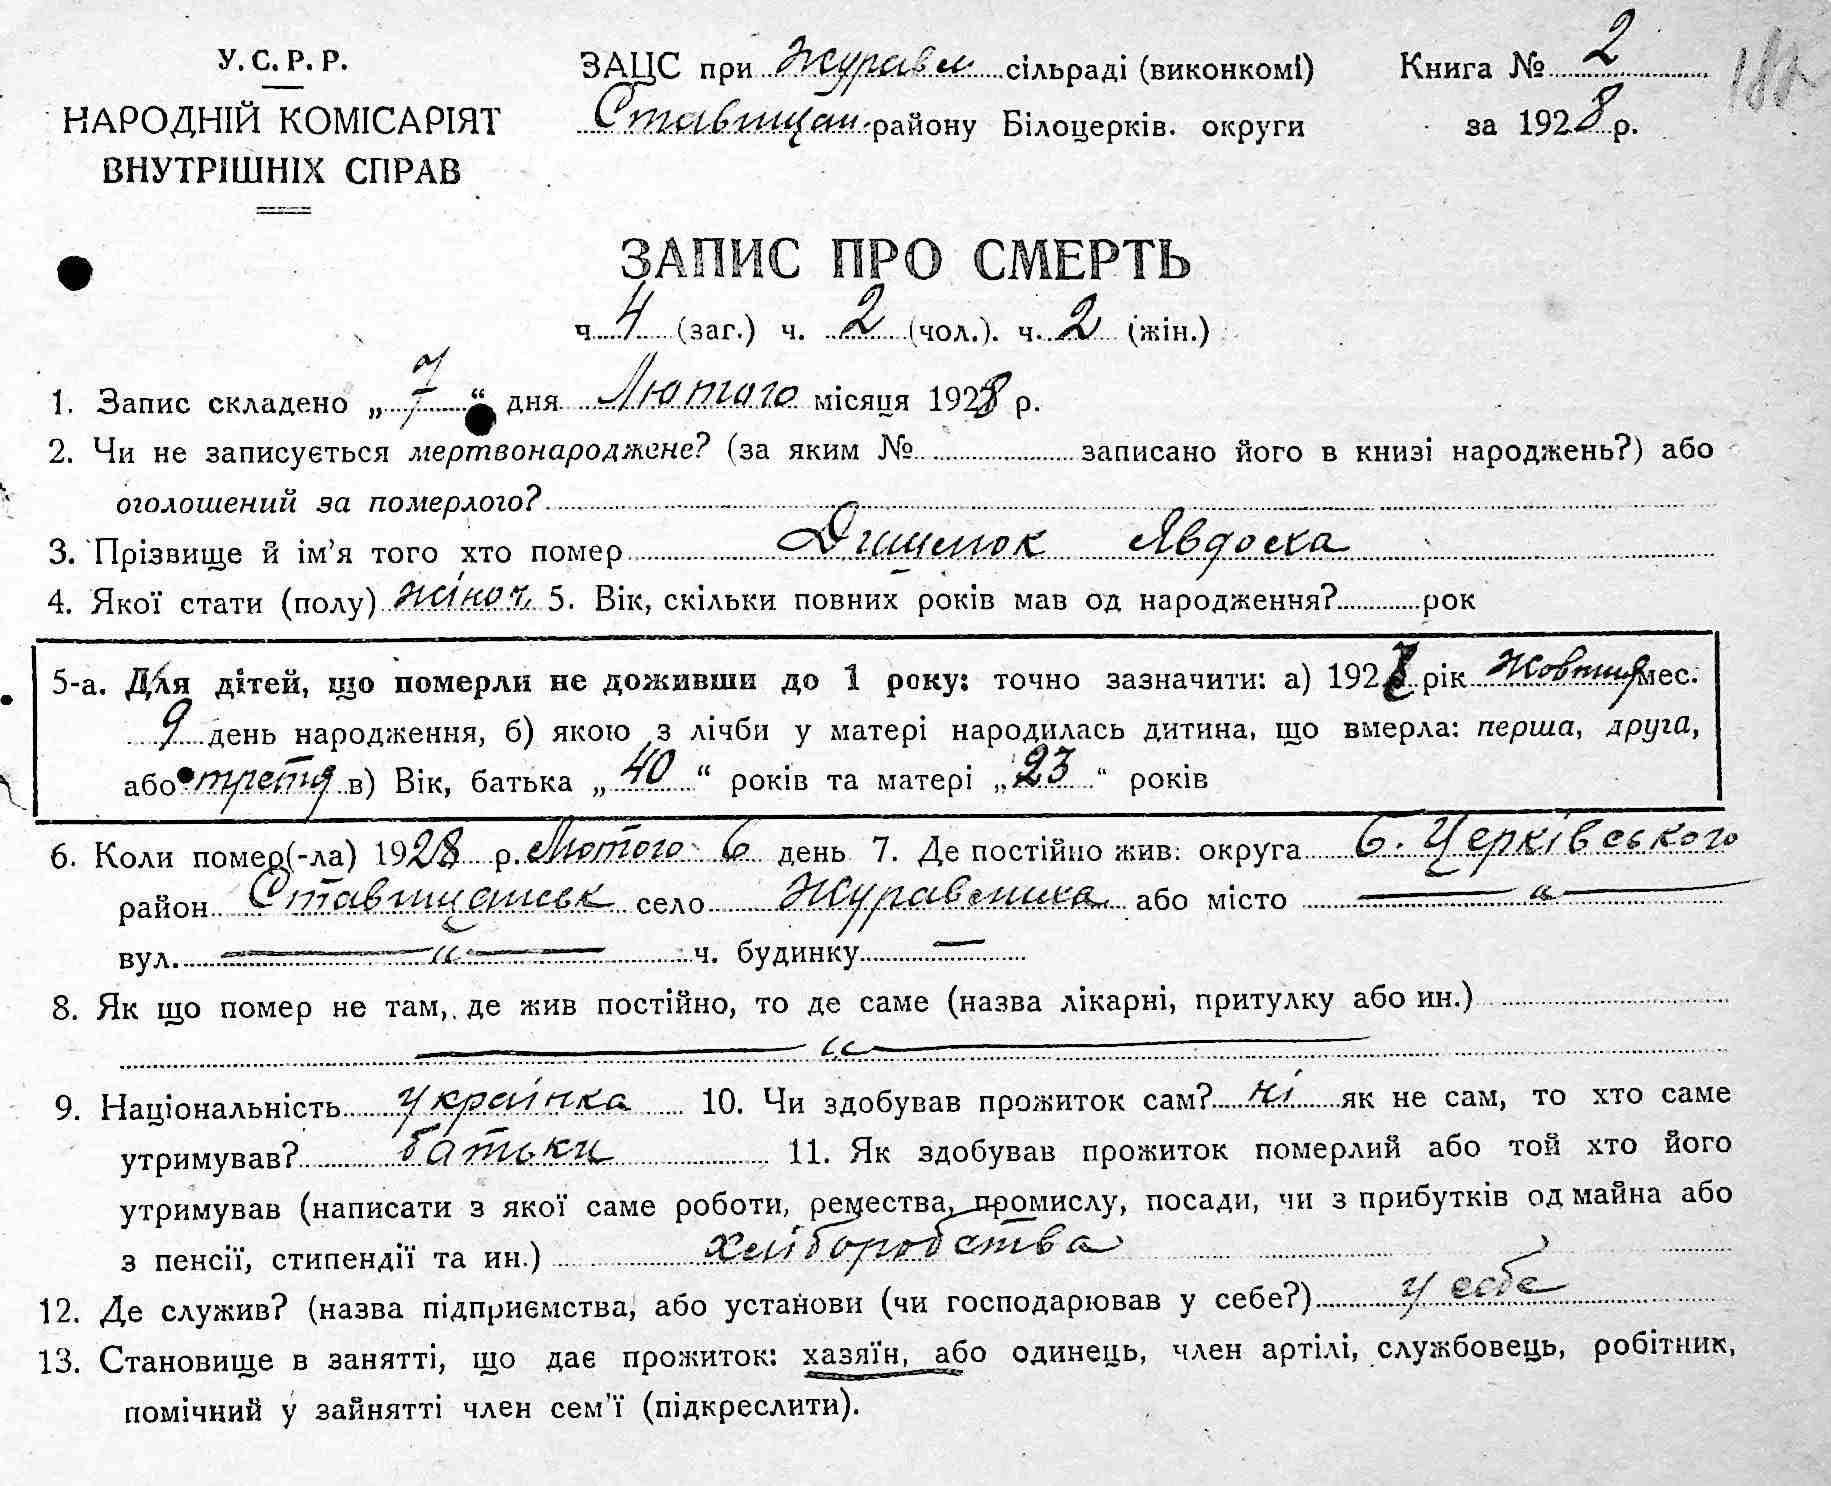 У. С. Р. Р.
НАРОДНІЙ КОМІСАРІЯТ
ВНУТРІШНІХ СПРАВ
ЗАЦС при Журавл сільраді (виконкомі)
Ставищан. району Білоцерків. округи
Книга № 2
за 1928 р.
ЗАПИС ПРО СМЕРТЬ
ч. 4 (заг.) ч. 2 (чол.). ч. 2 (жін.)
1. Запис складено „ 7 “ дня Лютого місяця 1928 р.
2. Чи не записується мертвонароджене? (за яким № записано його в книзі народжень?) або
оголошений за померлого?
3. Прізвище й ім’я того хто помер Явдоска
4. Якої стати (полу) жіноч. 5. Вік, скільки повних років мав од народження? рок
5-а. Для дітей, що померли не доживши до 1 року: точно зазначити: а) 1927 рік Жовтня мес.
9 день народження, б) якою з лічби у матері народилась дитина, що вмерла: перша, друга,
або третя в) Вік, батька „ 40 “ років та матері „ 23 “ років
6. Коли помер(-ла) 1928 р. Лютого 6 день 7. Де постійно жив: округа Б. Церківського
район Ставищанськ село Журавлиха або місто — „ —
вул. — „ — ч. будинку —
8. Як що помер не там, де жив постійно, то де саме (назва лікарні, притулку або ин.)
— „ —
9. Національність українка 10. Чи здобував прожиток сам? ні як не сам, то хто саме
утримував? батьки 11. Як здобував прожиток померлий або той хто його
утримував (написати з якої саме роботи, ремества, промислу, посади, чи з прибутків од майна або
з пенсії, стипендії та ин.) хліборобства
12. Де служив? (назва підприємства, або установи (чи господарював у себе?) у себе
13. Становище в занятті, що дає прожиток: хазяїн, або одинець, член артілі, службовець, робітник,
помічний у зайнятті член сем’ї (підкреслити).